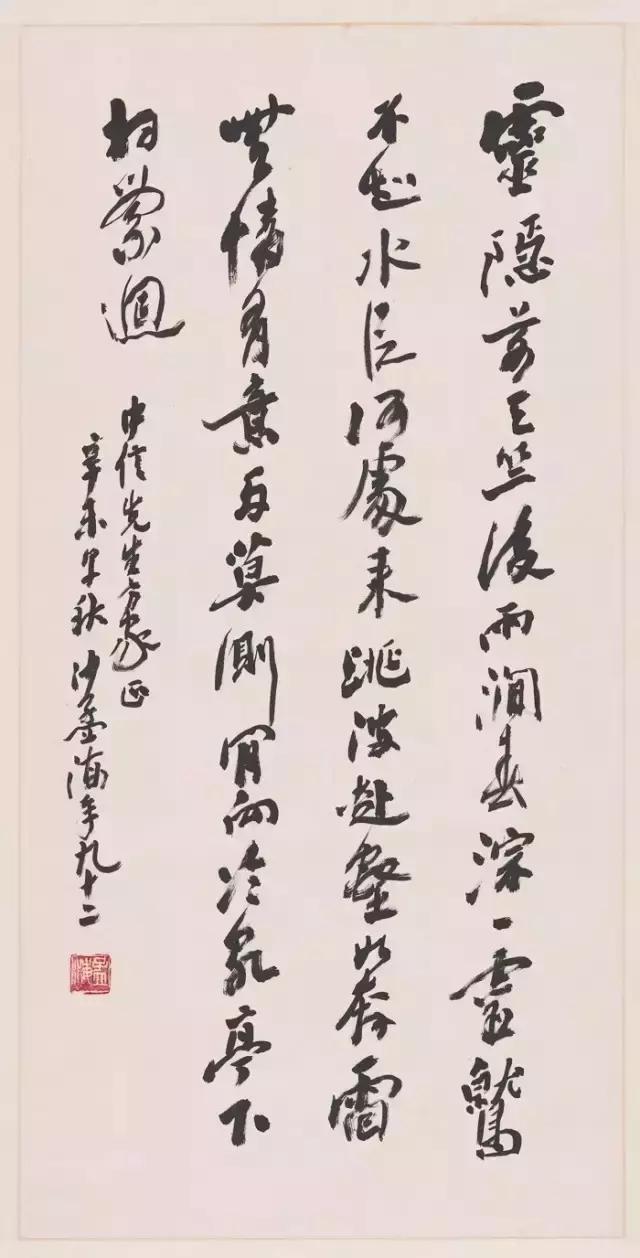 靈隱前天竺後兩澗春淙一靈鷲
不知水從何處來跳波赴壑如奔雷
無情有意兩莫測肯向冷泉亭下
相縈迴
中信先生方家正
辛未早秋沙孟海年九十二